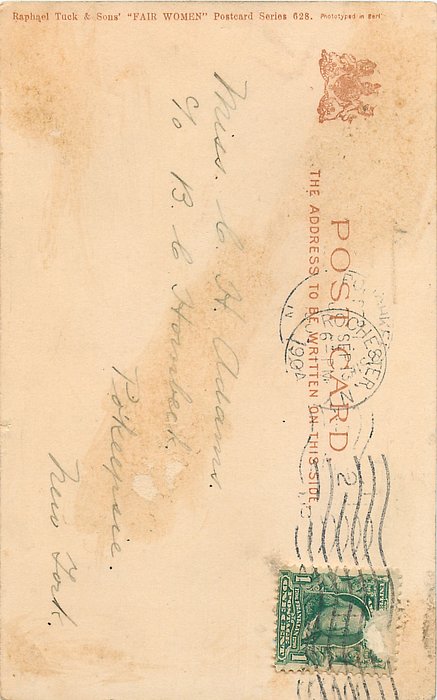 Raphael Tuck & Sons' "FAIR WOMEN" Postcard Series 628. Phototyped in Berl
POST CARD
THE ADDRESS TO BE WRITTEN ON THIS SIDE.
CHESTER
SEP
6- PM
1904
N.Y.
2
Miss. C. H. Adams,
c/o B. C. Hornbeck.
Po'keepsie.
New York.
FRANKLIN
POSTAGE
1 ONE CENT 1